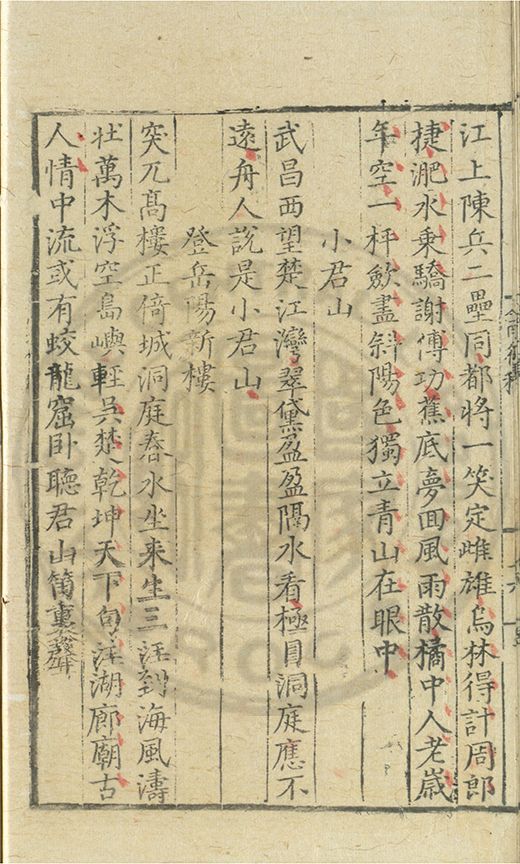 江上陳兵二壘同都將一笑定雌雄烏林得計周郎
捷淝水乗驕謝傅功蕉底夢回風雨散橘中人老歲
年空一枰斂盡斜陽色獨立青山在眼中
小君山
武昌西望楚江灣翠黛盈盈隔水看極目洞庭應不
遠舟人說是小君山
登岳陽新樓
突兀高樓正倚城洞庭春水坐来生三江到海風濤
壮萬木浮空島嶼輕吳楚乾坤天下句江湖廊廟古
人情中流或有蛟龍窟卧聽君山笛裏聲